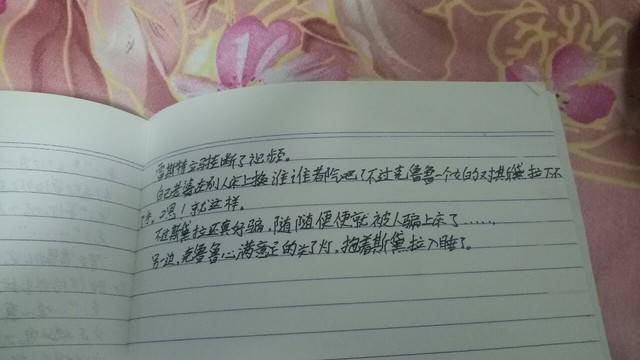 雷斯特立马挂断了视频。
自己老婆在别人床上换谁谁都吃吧了不过克鲁鲁一个女的对斯黛拉下不
了手。嗯！就这样。
不过斯黛拉还真好骗，随随便便就被人骗上床了……
另一边，克鲁鲁心满意足的关了灯，抱着斯黛拉入睡了。